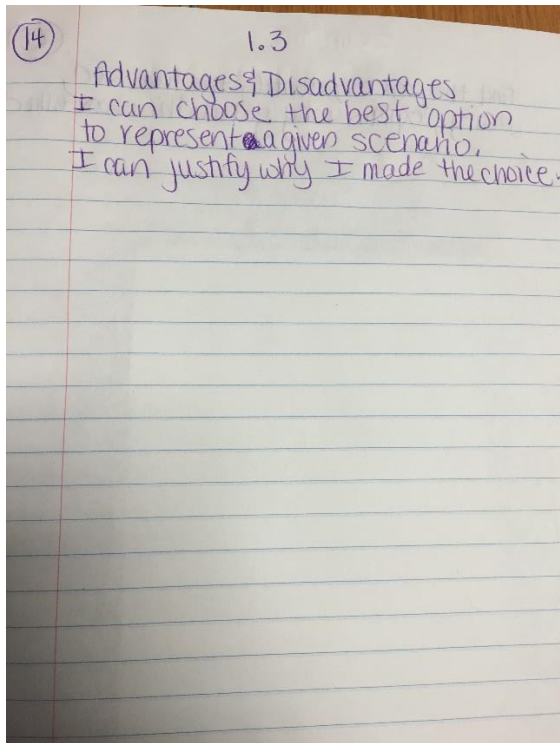 14
1.3
Advantages & Disadvantages
I can choose the best option
to represent a given scenario.
I can justify why I made the choice.